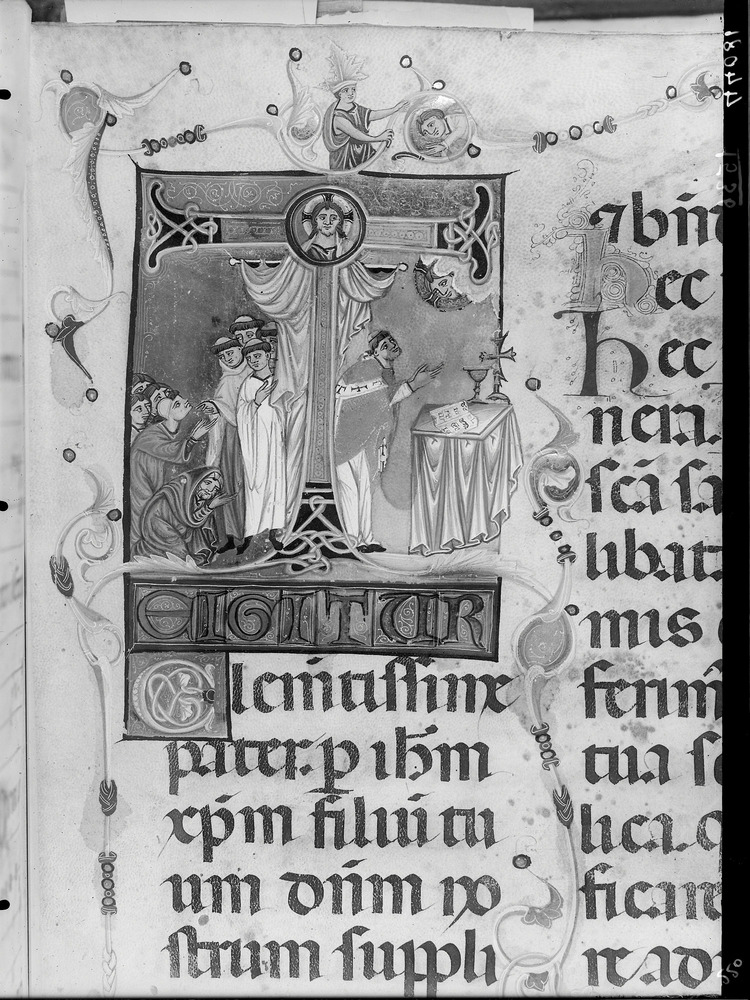 T
EIGITUR
Clem̄tissime
pater. p̲ ihm̄
xp̄m filiū tu
um dn̄m no
strum suppli
⁊ bn̄
hec
hec
nera.
scā sa
libat
mis
ferim̄
tua s
lica.
ficare
re ad
44081